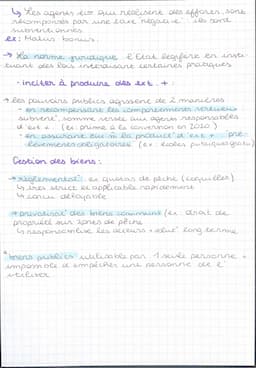 ↳ Les agents éco qui réalisent des efforts sont
récompensés par une taxe négative : ils sont
subventionnés.
ex: Malus bonus.
→ La norme juridique : l'Etat légifère en insti-
tuant des lois interdisant certaines pratiques
- inciter à produire des ext. +:
→ les pouvoirs publics agissent de 2 manières
- en récompensant les comportements vertueux
subvent°, somme versée aux agents responsables
d'ext + (ex: prime à la conversion en 2020)
- en assurant eux-m̂ la product° d'ext + pré-
lèvements obligatoires (ex: écoles publiques gratu)
Gestion des biens:
→ réglementat°: ex quotas de pêche (coquilles)
↳ très strict et applicable rapidement
↳ contournable
→ privatisat° des biens communs (ex: droit de
propriété sur zones de pêche
↳ responsabilise les acteurs + solut° long terme
* biens publics utilisable par 1 seule personne +
impossible d'empêcher une personne de l'
utiliser